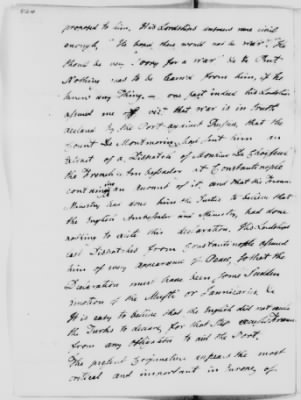 proposed to him. His Lordships answers were civil
enough, "He hoped there would not be War". "He
should be very sorry for a War" &c &c But
Nothing was to be learned from him, if he
knew any Thing. — one fact indeed his Lordship
assured me of viz. that War is in Truth
declared by the Port against Russia, that the
Count De Montmorin, had sent him an
Extract of a Dispatch of Monsieur De Choiseul
the French Ambassador at Constantinople
containing an account of it, and that the French
Ministry has done him the Justice to believe that
the English Ambassador and Ministry, had done
nothing to excite this declaration. His Lordships
last Dispatches from Constantinople assured
him of every appearance of Peace, so that the
Declaration must have been some Sudden
emotion of the Mufti or Janissaries &c
It is easy to believe that the English did not excite
the Turks to declare, for that Step France
from any obligation to aid the Port.
The present Conjuncture appears the most
critical and important in Europe, of